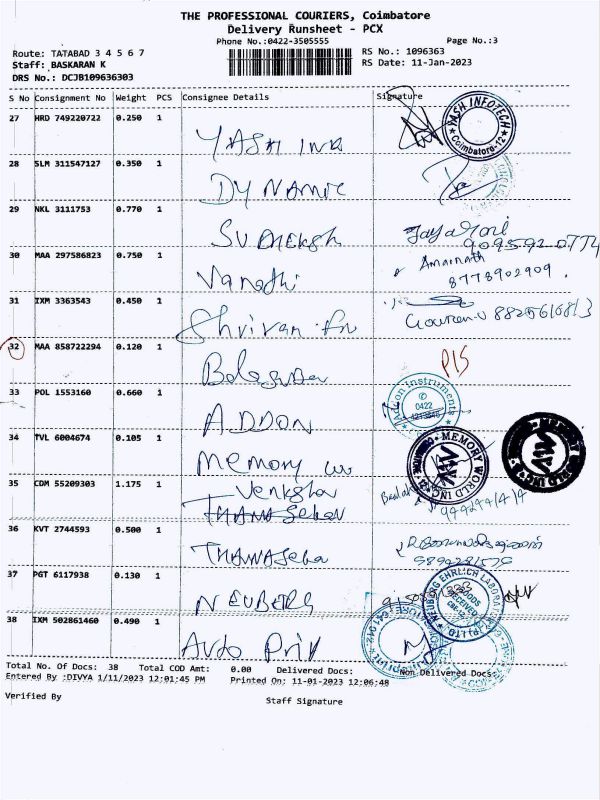 THE PROFESSIONAL COURIERS, Coimbatore
Delivery Runsheet - PCX
Phone No.:0422-3505555
Page No.:3
Route: TATABAD 3 4 5 6 7
RS No.: 1096363
Staff: BASKARAN K
RS Date: 11-Jan-2023
DRS No.: DCJB109636303
S No Consignment No Weight PCS Consignee Details Signature
27 HRD 749220722 0.250 1 YASH YASH INFOTECH Coimbatore-12
28 SLM 311547127 0.350 1 DYNAMIC
29 NKL 3111753 0.770 1
9095920774
30 MAA 297586823 0.750 1 Vanathi Amarnath
8778902909.
31 IXM 3363543 0.450 1 8825616813
32 MAA 858722294 0.120 1 P15
33 POL 1553160 0.660 1 ADDON Addon Instruments 0422
34 TVL 6004674 0.105 1 MEMORY MEMORY WORLD INC MEMORY WORLD INC
35 CDM 55209303 1.175 1
36 KVT 2744593 0.500 1
37 PGT 6117938 0.130 1 NEUBERG NEUBERG EHRLICH LABORATORY
38 IXM 502861460 0.490 1 Auto
Total No. Of Docs: 38 Total COD Amt: 0.00 Delivered Docs: Non Delivered Docs:
Entered By :DIVYA 1/11/2023 12:01:45 PM Printed On: 11-01-2023 12:06:48
Verified By
Staff Signature